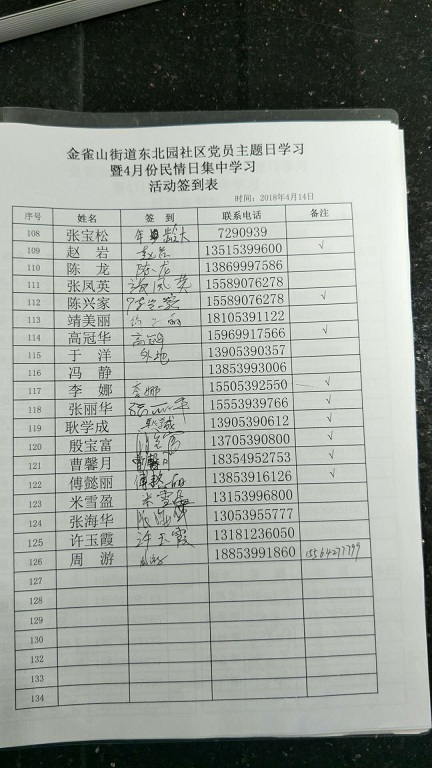 金雀山街道东北园社区党员主题日学习
暨4月份民情日集中学习
活动签到表
时间：2018年4月14日
序号 姓名 签 到 联系电话 备注
108 张宝松 7290939
109 赵 岩 赵岩 13515399600 √
110 陈 龙 陈龙 13869997586
111 张凤英 张凤英 15589076278
112 陈兴家 陈兴家 15589076278 √
113 靖美丽 18105391122
114 高冠华 15969917566 √
115 于 洋 外地 13905390357
116 冯 静 13853993006
117 李 娜 李娜 15505392550 √
118 张丽华 张丽华 15553939766 √
119 耿学成 13905390612 √
120 殷宝富 13705390800 √
121 曹馨月 曹馨月 18354952753 √
122 傅懿丽 13853916126 √
123 米雪盈 米雪盈 13153996800
124 张海华 张海华 13053955777
125 许玉霞 许玉霞 13181236050
126 周 游 18853991860
127
128
129
130
131
132
133
134